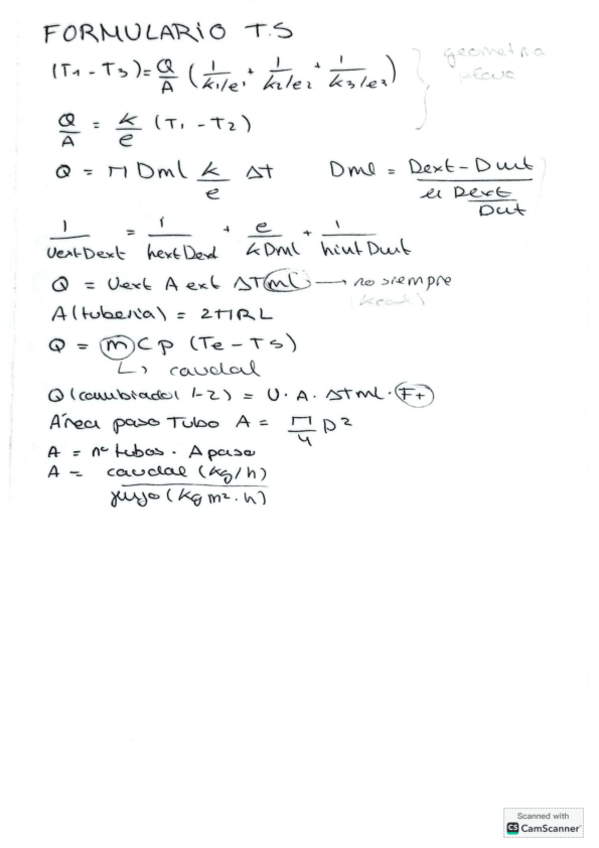 FORMULARIO T.S
(T1 - T3) = Q/A (1/k1/e1 + 1/k2/e2 + 1/k3/e3) } geometria
Q/A = k/e (T1 - T2)
Q = π Dml k/e Δt    Dml = Dext - Dint / ln Dext/Dint
1/Uext Dext = 1/hext Dext + e/k Dml + 1/hint Dint
Q = Uext A ext ΔT ml → no siempre
A (tuberia) = 2πRL
Q = m Cp (Te - Ts)
↳ caudal
Q (cambiador 1-2) = U · A · ΔT ml · Ft
Área paso Tubo A = π/4 D²
A = nº tubos · A paso
A = caudal (kg/h) / flujo (kg m² · h)
Scanned with
CS CamScanner